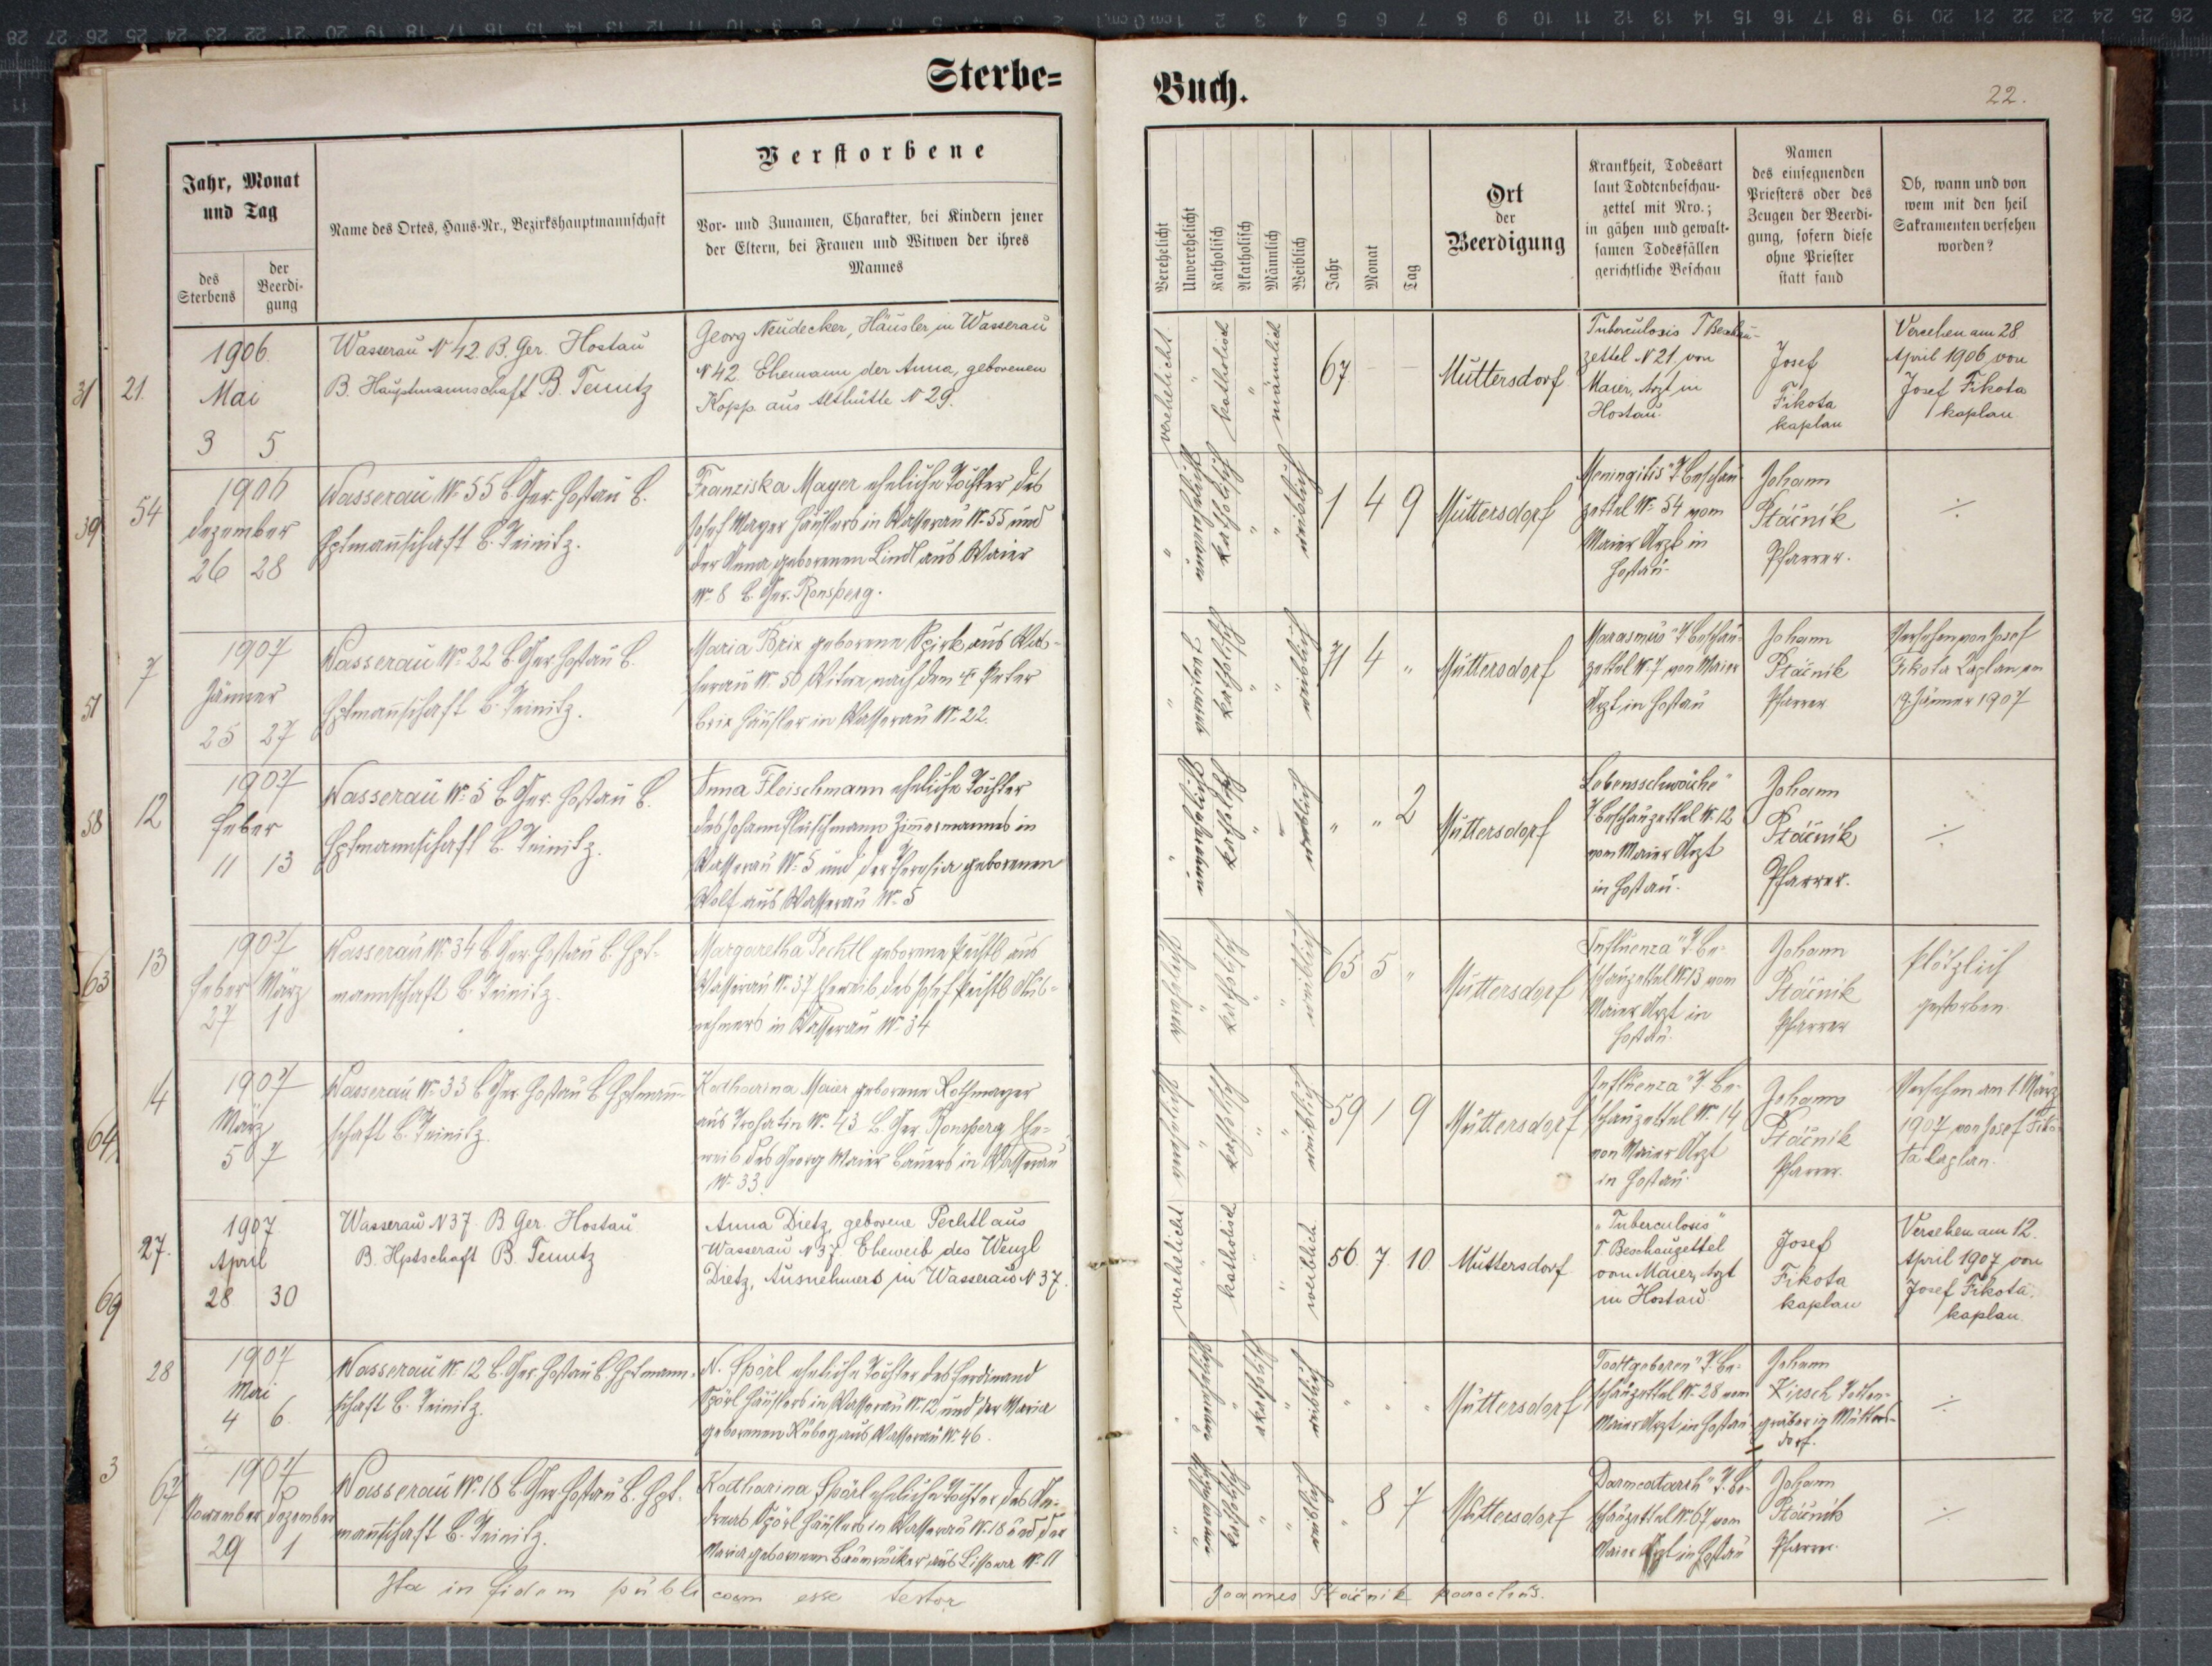 Sterbe=
Buch.
22.
Jahr, Monat
und Tag
des
Sterbens
der
Beerdi-
gung
Name des Ortes, Haus-Nr., Bezirkshauptmannschaft
Verstorbene
Vor- und Zunamen, Charakter, bei Kindern jener
der Eltern, bei Frauen und Witwen der ihres
Mannes
Verehelicht
Unverehelicht
Katholisch
Akatholisch
Männlich
Weiblich
Jahr
Monat
Tag
Ort
der
Beerdigung
Krankheit, Todesart
laut Todtenbeschau-
zettel mit Nro.;
in gähen und gewalt-
samen Todesfällen
gerichtliche Beschau
Namen
des einsegnenden
Priesters oder des
Zeugen der Beerdi-
gung, sofern diese
ohne Priester
statt fand
Ob, wann und von
wem mit den heil
Sakramenten versehen
worden?
31
21.
1906.
Mai
3 5
Wasserau N 42. B. Ger. Hostau
B. Hauptmannschaft B. Teinitz
Georg Neudecker, Häusler in Wasserau
N 42. Ehemann der Anna, geborenen
Kopp aus Althütte N 29.
verehelicht
katholisch
männlich
67 — —
Muttersdorf.
Tuberculosis T Beschau-
zettel N 21, von
Maier, Arzt in
Hostau.
Josef
Fikota
kaplan
Versehen am 28.
April 1906 von
Josef Fikota
kaplan.
39
54
1906
Dezember
26 28
Wasserau No 55 B. Ger. Hostau B.
Hptmannschaft B. Teinitz.
Franziska Mayer eheliche Tochter des
Josef Mayer Häuslers in Wasserau No 55 und
der Anna geborenen Lindl aus Waier
No 8 B. Ger. Ronsperg.
unverehelicht
katholisch
weiblich
1 4 9
Muttersdorf
Meningitis" T. Beschau-
zettel No 54 vom
Maier Arzt in
Hostau.
Johann
Ptáčník
Pfarrer.
÷
51
7
1907
Jänner
25 27
Wasserau No 22 B. Ger. Hostau B.
Hptmannschaft B. Teinitz.
Maria Brix geborene Spirk aus Was-
serau No 50 Witwe nach dem † Peter
Brix Häusler in Wasserau No 22.
verwitwet
katholisch
weiblich
71 4 "
Muttersdorf
Marasmus" T Beschau-
zettel No 7 von Maier
Arzt in Hostau
Johann
Ptáčník
Pfarrer
Versehen von Josef
Fikota Kaplan am
19. Jänner 1907
58
12
1907
Feber
11 13
Wasserau No 5 B. Ger. Hostau B.
Hptmannschaft B. Teinitz.
Anna Fleischmann eheliche Tochter
des Johann Fleischmann Zimmermannes in
Wasserau No 5 und der Theresia geborenen
Wolf aus Wasserau No 5
unverehelicht
katholisch
weiblich
" " 2
Muttersdorf
Lebensschwäche"
T Beschauzettel No 12
vom Maier Arzt
in Hostau.
Johann
Ptáčník
Pfarrer.
÷
63
13
1907
Feber März
27 1
Wasserau No 34 B. Ger. Hostau B. Hpt-
mannschaft B. Teinitz.
Margaretha Pechtl geborene Pechtl aus
Wasserau No 37 Eheweib des Josef Pechtl Aus-
nehmers in Wasserau No 34
verehelicht
katholisch
weiblich
65 5 "
Muttersdorf
Influenza" T. Be-
schauzettel No 13 vom
Maier Arzt in
Hostau.
Johann
Ptáčník
Pfarrer
plötzlich
gestorben.
64
14
1907
März
5 7
Wasserau No 33 B. Ger. Hostau B. Hptmann-
schaft B. Teinitz.
Katharina Maier geborene Rothmayer
aus Trohatin No 43 B. Ger. Ronsperg Ehe-
weib des Georg Maier Bauers in Wasserau
No 33.
verehelicht
katholisch
weiblich
59 1 9
Muttersdorf
Influenza" T. Be-
schauzettel No 14
von Maier Arzt
in Hostau.
Johann
Ptáčník
Pfarrer.
Versehen am 1. März
1907 von Josef Fiko-
ta Kaplan.
69
27.
1907
April
28 30
Wasserau N 37. B. Ger. Hostau
B. Hptschaft B. Teinitz
Anna Dietz, geborene Pechtl aus
Wasserau N 37. Eheweib des Wenzl
Dietz, Ausnehmers in Wasserau N 37.
verehelicht
katholisch
weiblich
56. 7. 10.
Muttersdorf
„Tuberculosis"
T. Beschauzettel
von Maier, Arzt
in Hostau.
Josef
Fikota
kaplan
Versehen am 12.
April 1907 von
Josef Fikota,
kaplan.
28
1907
Mai
4 6.
Wasserau No 12 B. Ger. Hostau B. Hptmann-
schaft B. Teinitz.
N. Spörl eheliche Tochter des Ferdinand
Spörl Häuslers in Wasserau No 12 und der Maria
geborenen aus Wasserau No 46.
unverehelicht
akatholisch
weiblich
" " "
Muttersdorf
Todtgeboren" T. Be-
schauzettel No 28 vom
Maier Arzt in Hostau
Johann
Kirsch Toten-
gräber in Mutters-
dorf.
÷
3
67
1907
November Dezember
29 1
Wasserau No 18 B. Ger. Hostau B. Hpt-
mannschaft B. Teinitz.
Katharina Spörl eheliche Tochter des An-
dreas Spörl Häuslers in Wasserau No 18 und der
Maria geborenen Baumrucker aus Lissowa No 11
unverehelicht
katholisch
weiblich
" 8 7
Muttersdorf
Darmcatarrh" T. Be-
schauzettel No 67 vom
Maier Arzt in Hostau
Johann
Ptáčník
Pfarrer.
÷
Ita in fidem publicam esse testor
Joannes Ptáčník parochus.